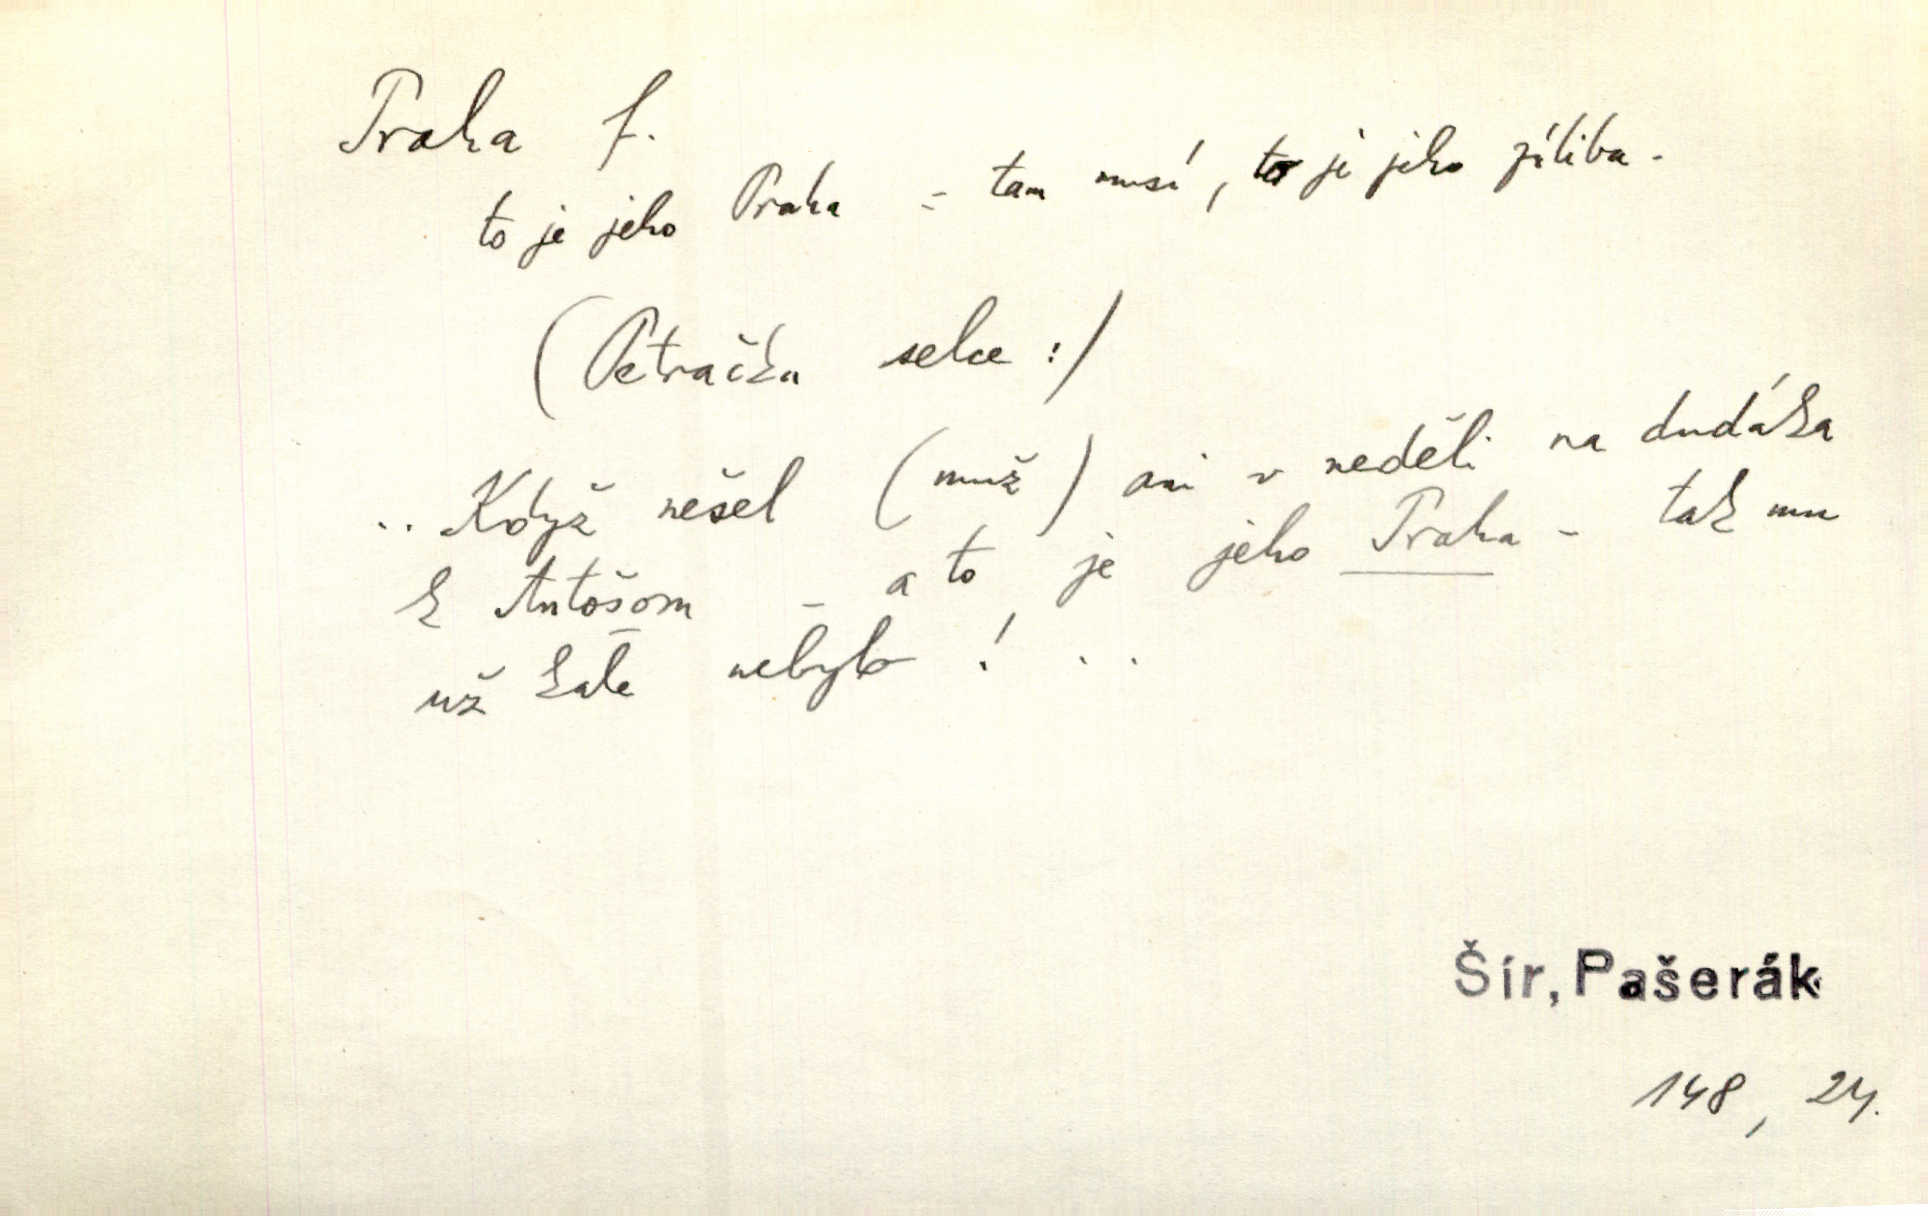 Praha f.
to je jeho Praha = tam musí, to je jeho záliba.
(Petračka selce:)
.. Když nešel (muž) ani v neděli na dudáka
k Antošom – a to je jeho Praha – tak mu
už kalē nebylo! ..
Šír, Pašerák
148, 24.